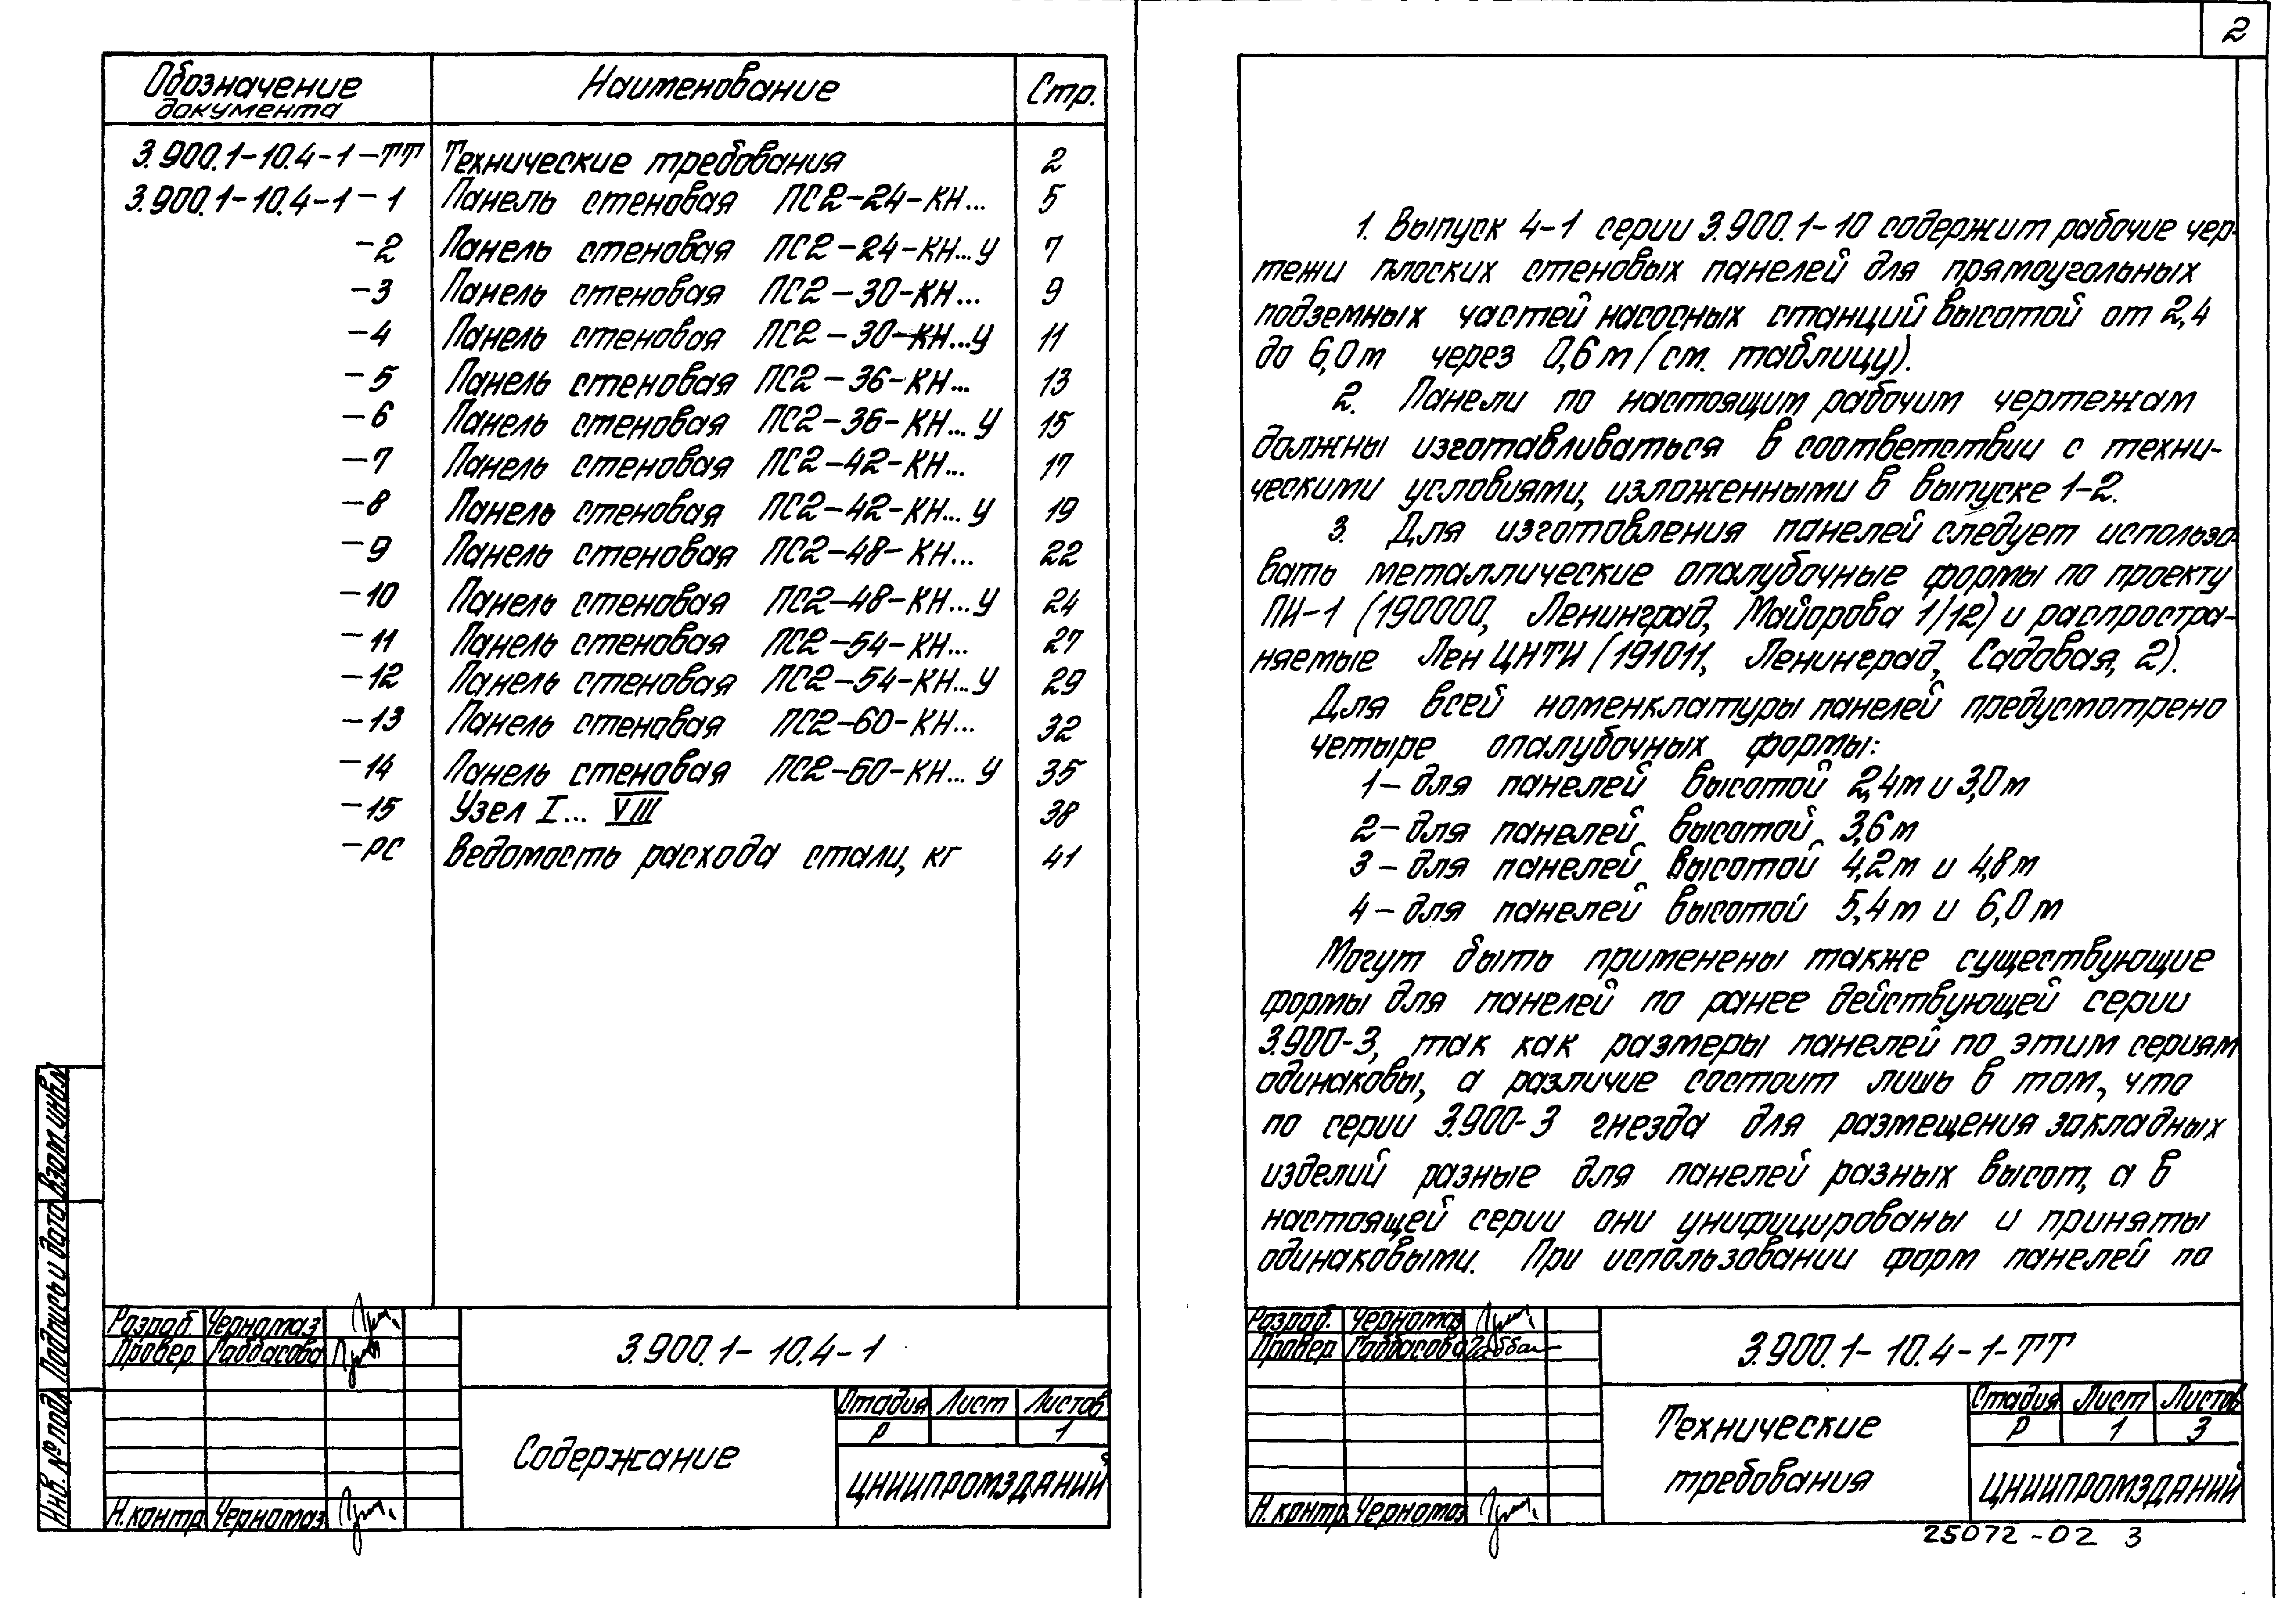 Обозначение документа Наименование Стр.
3.900.1-10.4-1-ТТ Технические требования 2
3.900.1-10.4-1-1 Панель стеновая ПС2-24-КН... 5
-2 Панель стеновая ПС2-24-КН...У 7
-3 Панель стеновая ПС2-30-КН... 9
-4 Панель стеновая ПС2-30-КН...У 11
-5 Панель стеновая ПС2-36-КН... 13
-6 Панель стеновая ПС2-36-КН...У 15
-7 Панель стеновая ПС2-42-КН... 17
-8 Панель стеновая ПС2-42-КН...У 19
-9 Панель стеновая ПС2-48-КН... 22
-10 Панель стеновая ПС2-48-КН...У 24
-11 Панель стеновая ПС2-54-КН... 27
-12 Панель стеновая ПС2-54-КН...У 29
-13 Панель стеновая ПС2-60-КН... 32
-14 Панель стеновая ПС2-60-КН...У 35
-15 Узел I... VIII 38
-РС Ведомость расхода стали, кг 41
Взам инв.№
Подпись и дата
Инв. № подл
Разраб. Черномаз
Провер. Габбасова
Н.контр Черномаз
3.900.1-10.4-1
Содержание
Стадия Лист Листов
Р 1
ЦНИИПРОМЗДАНИЙ
2
1. Выпуск 4-1 серии 3.900.1-10 содержит рабочие чер-
тежи плоских стеновых панелей для прямоугольных
подземных частей насосных станций высотой от 2,4
до 6,0м через 0,6м (см. таблицу).
2. Панели по настоящим рабочим чертежам
должны изготавливаться в соответствии с техни-
ческими условиями, изложенными в выпуске 1-2.
3. Для изготовления панелей следует использо-
вать металлические опалубочные формы по проекту
ПИ-1 (190000, Ленинград, Майорова 1/12) и распростра-
няемые ЛенЦНТИ (191011, Ленинград, Садовая, 2).
Для всей номенклатуры панелей предусмотрено
четыре опалубочных формы:
1-для панелей высотой 2,4м и 3,0м
2-для панелей высотой 3,6м
3-для панелей высотой 4,2м и 4,8м
4-для панелей высотой 5,4м и 6,0м
Могут быть применены также существующие
формы для панелей по ранее действующей серии
3.900-3, так как размеры панелей по этим сериям
одинаковы, а различие состоит лишь в том, что
по серии 3.900-3 гнезда для размещения закладных
изделий разные для панелей разных высот, а в
настоящей серии они унифицированы и приняты
одинаковыми. При использовании форм панелей по
Разраб. Черномаз
Провер Габбасова
Н.контр Черномаз
3.900.1-10.4-1-ТТ
Технические
требования
Стадия Лист Листов
Р 1 3
ЦНИИПРОМЗДАНИЙ
25072-02 3